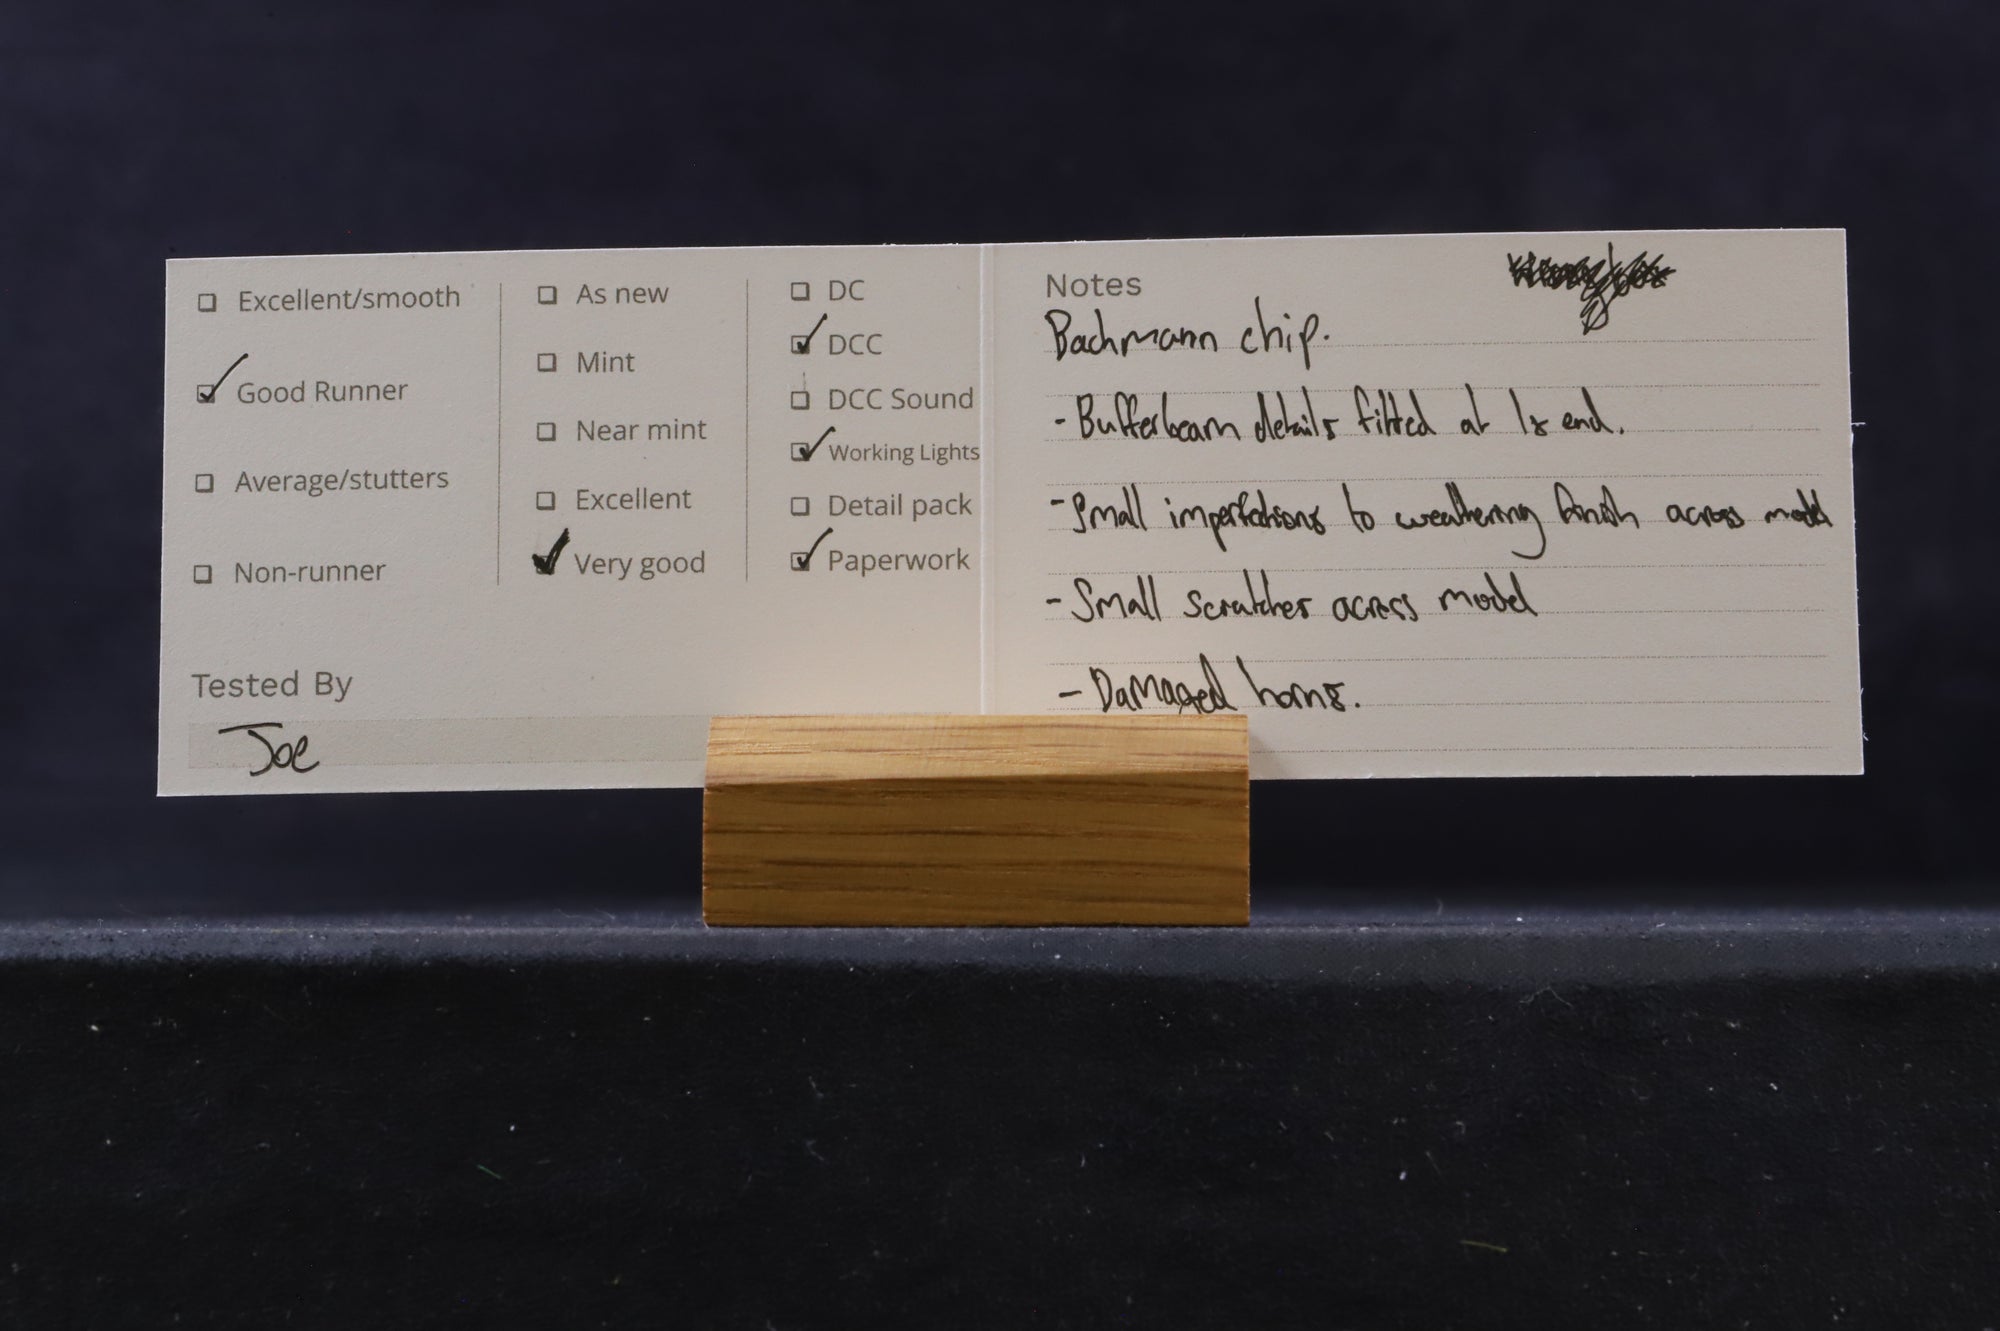 ☐ Excellent/smooth
☑ Good Runner
☐ Average/stutters
☐ Non-runner
☐ As new
☐ Mint
☐ Near mint
☐ Excellent
☑ Very good
☐ DC
☑ DCC
☐ DCC Sound
☑ Working Lights
☐ Detail pack
☑ Paperwork
Tested By
Joe
Notes
Bachmann chip.
- Bufferbeam details fitted at 1x end.
- Small imperfections to weathering finish across model
- Small scratches across model
- Damaged horns.